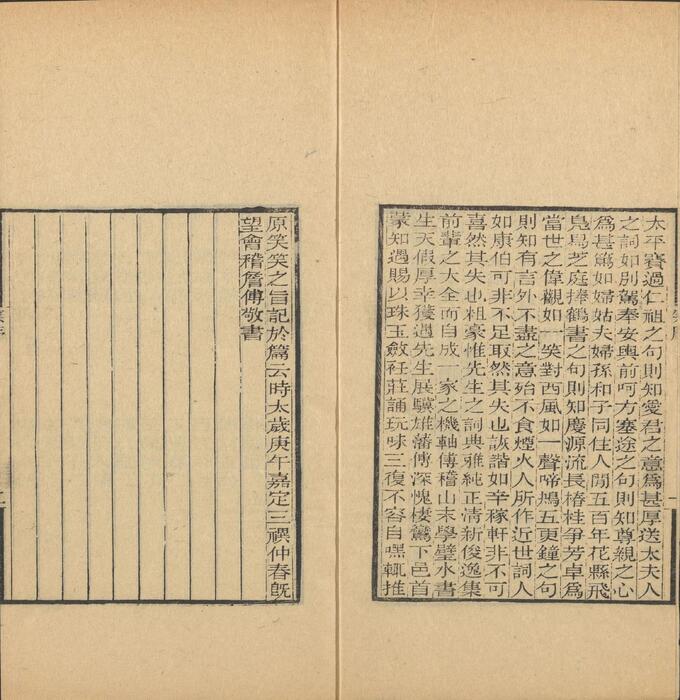 太平賽過仁祖之句則知愛君之意爲甚厚送太夫人
之詞如別駕奉安輿前呵方塞途之句則知尊親之心
爲甚篤如婦姑夫婦孫和子同住人間五百年花縣飛
鳧舄芝庭捧鶴書之句則知慶源流長椿桂爭芳卓爲
當世之偉觀如一笑對西風如一聲啼鴂五更鐘之句
則知有言外不盡之意殆不食煙火人所作近世詞人
如康伯可非不足取然其失也詼諧如辛稼軒非不可
喜然其失也粗豪惟先生之詞典雅純正清新俊逸集
前輩之大全而自成一家之機軸傅稽山末學璧水書
生天假厚幸獲遇先生展驥雄藩傅深愧棲鸞下邑首
蒙知遇賜以珠玉斂衽莊誦玩味三復不容自嘿輒推
原笑笑之旨記於篇云時太歲庚午嘉定三禩仲春旣
望會稽詹傅敬書